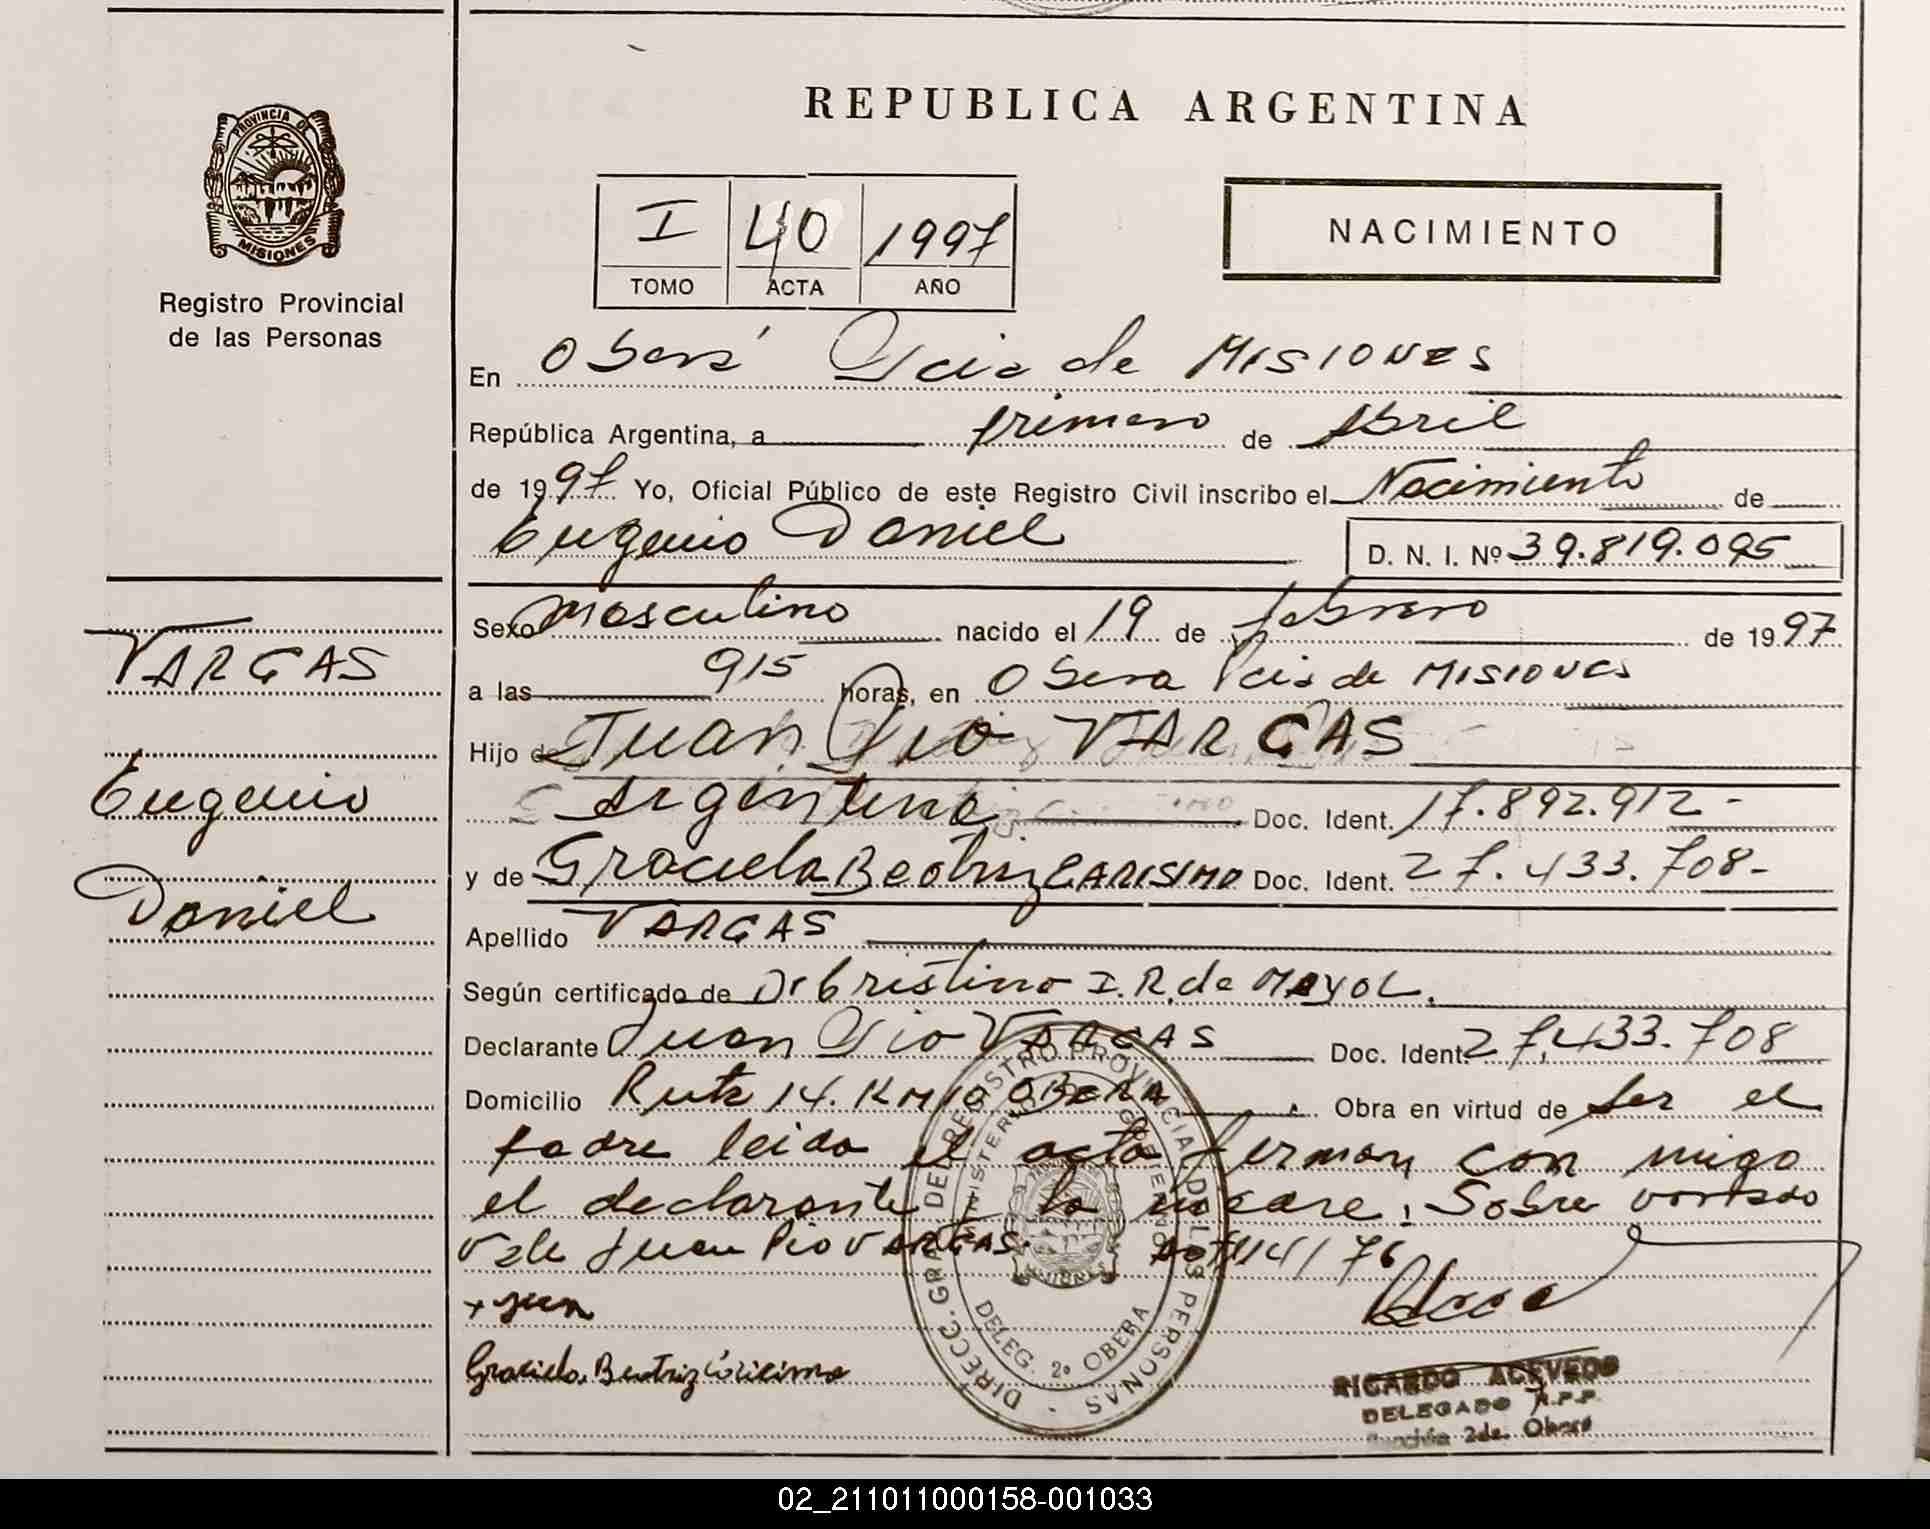 REPUBLICA ARGENTINA
PROVINCIA DE
MISIONES
Registro Provincial
de las Personas
I 40 1997
TOMO ACTA AÑO
NACIMIENTO
En Oberá Pcia de MISIONES
República Argentina, a primero de Abril
de 1997 Yo, Oficial Público de este Registro Civil inscribo el Nacimiento de
Eugenio Daniel D. N. I. Nº 39.819.095
Sexo Masculino nacido el 19 de febrero de 1997
a las 915 horas, en Obera Pcia de MISIONES
Hijo de Juan Pio VARGAS
Argentino Doc. Ident. 17.892.912-
y de Graciela Beatriz CARISIMO Doc. Ident. 27.433.708-
Apellido VARGAS
Según certificado de Dr Cristino I. R. de MAYOL.
Declarante Juan Pio VARGAS Doc. Ident. 27.433.708
Domicilio Ruta 14. KM 10 OBERA. Obra en virtud de ser el
padre leida el acta firman con migo
el declarante y la madre. Sobre
Vale Juan Pio VARGAS. 114/76
VARGAS
Eugenio
Daniel
Graciela Beatriz
DIRECC. GRAL DEL REGISTRO PROVINCIAL DE LAS PERSONAS
MINISTERIO DE GOBIERNO
MISIONES
DELEG. 2º OBERA
RICARDO ACEVEDO
DELEGADO R.P.P.
Sección 2da. Oberá
02_211011000158-001033